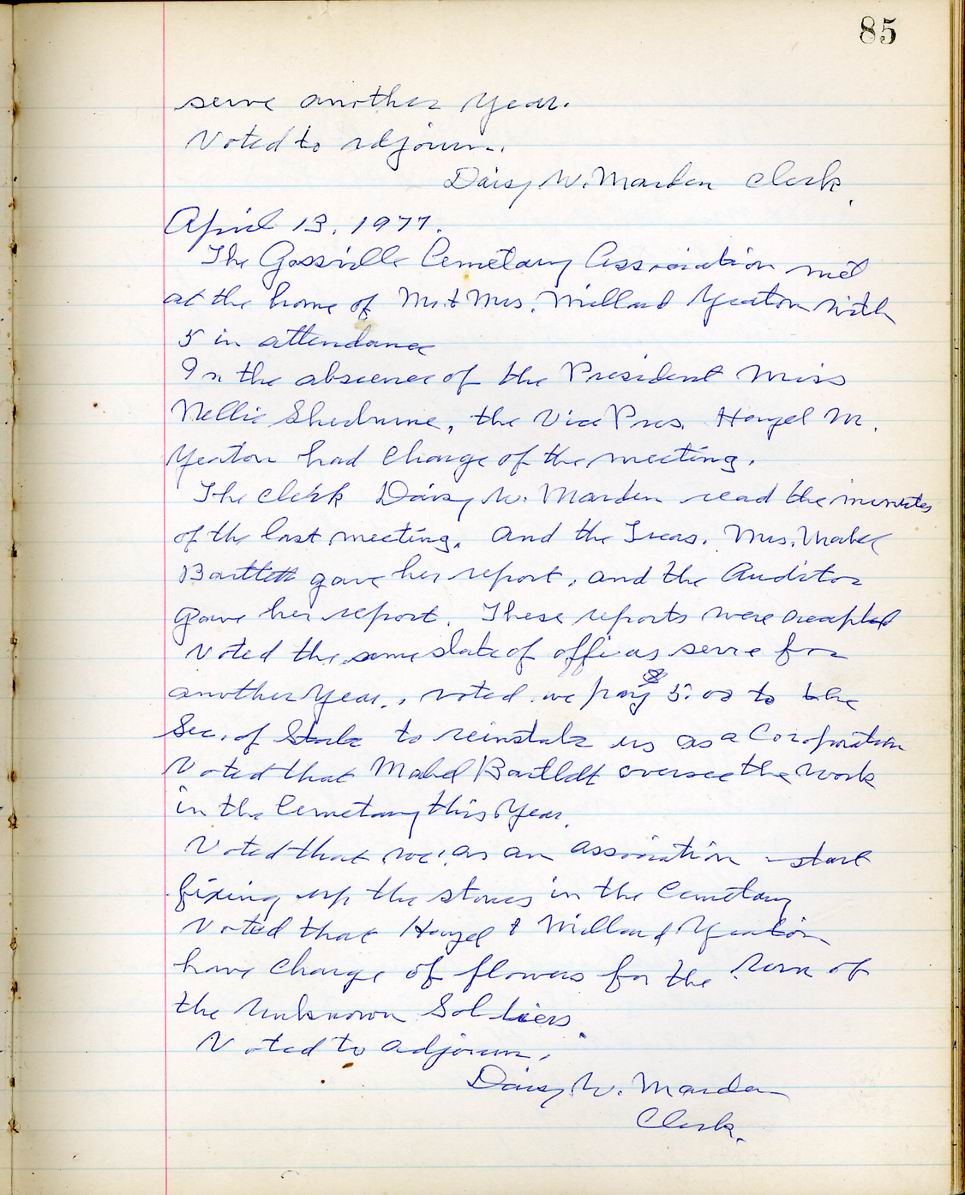 85
serve another year.
Voted to adjourn.
Daisy W. Marden Clerk.
April 13, 1977.
The Gossville Cemetary Association met
at the home of Mr. & Mrs. Millard Yeaton with
5 in attendance
In the absence of the President Miss
Nellie Sherburne, the Vice Pres. Hazel M.
Yeaton had Charge of the meeting.
The clerk Daisy W. Marden read the minutes
of the last meeting. And the Treas. Mrs. Mabel
Bartlett gave her report, and the Auditor
gave her report. These reports were accepted
Voted the same slate of officers serve for
another Year., voted we pay $5.00 to the
Sec. of State to reinstate us as a Corporation
Voted that Mabel Bartlett oversee the work
in the Cemetary this Year.
Voted that we, as an association start
fixing up the stones in the Cemetary
Voted that Hazel & Millard Yeaton
have charge of flowers for the Urn of
the Unknown Soldiers.
Voted to adjourn.
Daisy W. Marden
Clerk.